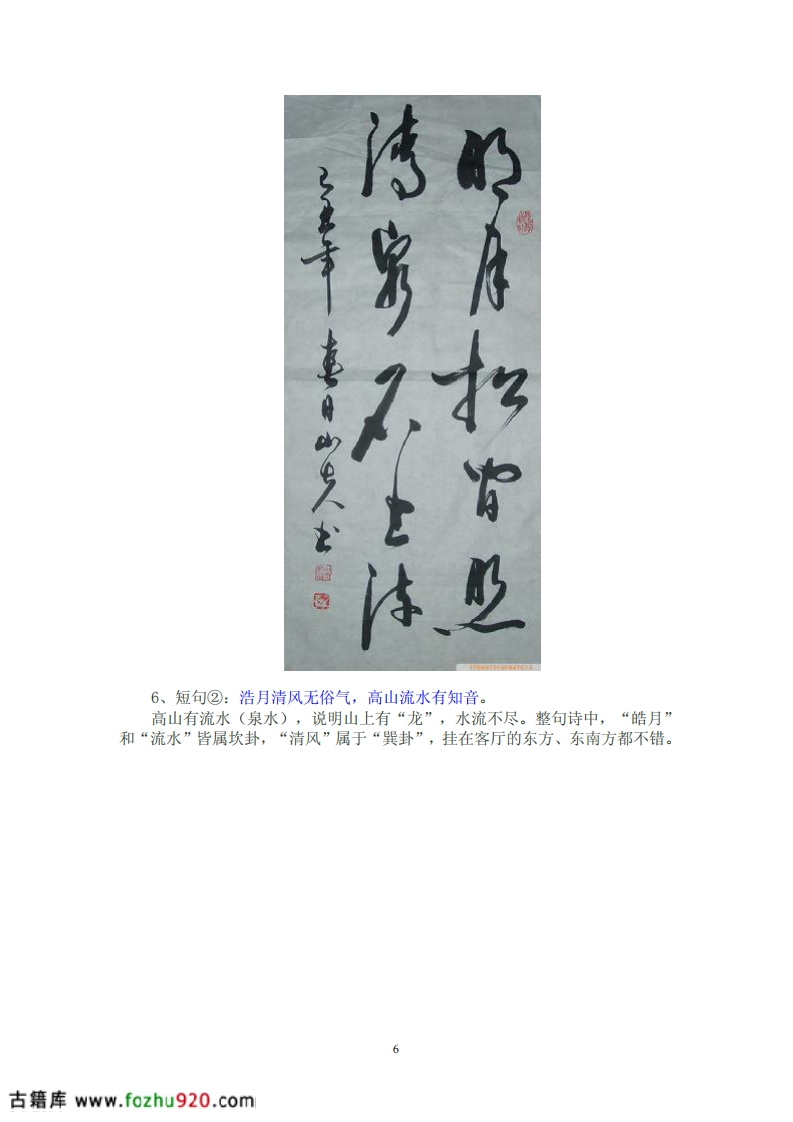 明月松间照
清泉石上流
己丑年 春日山夫书
6、短句②：浩月清风无俗气，高山流水有知音。
高山有流水（泉水），说明山上有“龙”，水流不尽。整句诗中，“皓月”
和“流水”皆属坎卦，“清风”属于“巽卦”，挂在客厅的东方、东南方都不错。
6
古籍库 www.fozhu920.com